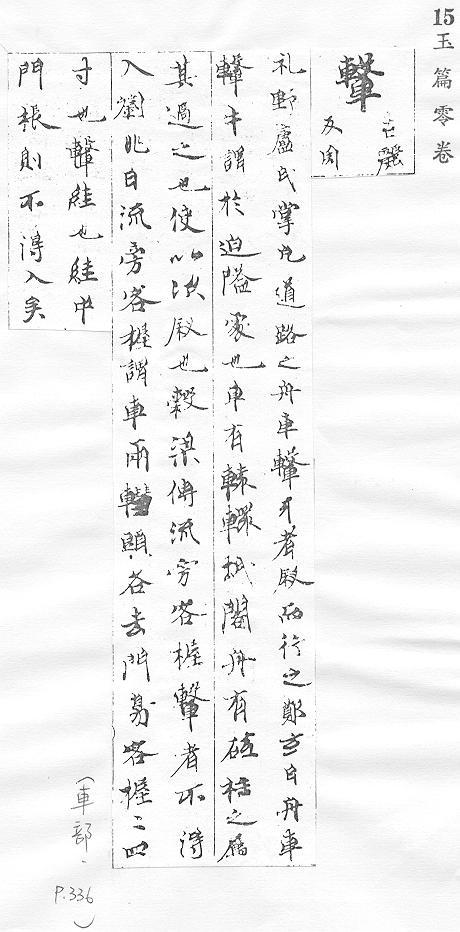 15 玉篇零卷
轚
古麗
反周
礼野廬氏掌凢道路之舟車轚互者叙而行之鄭玄曰舟車
轚互謂於迫隘處也車有轘抵閣舟有砥柱之属
其過之也使以次叙也穀梁傳流旁容握轚者不得
入劉兆曰流旁容握謂車兩轊頭各去門旁容握〻四
寸也轚絓也絓中
門棖則不得入矣
(車部、
P.336)